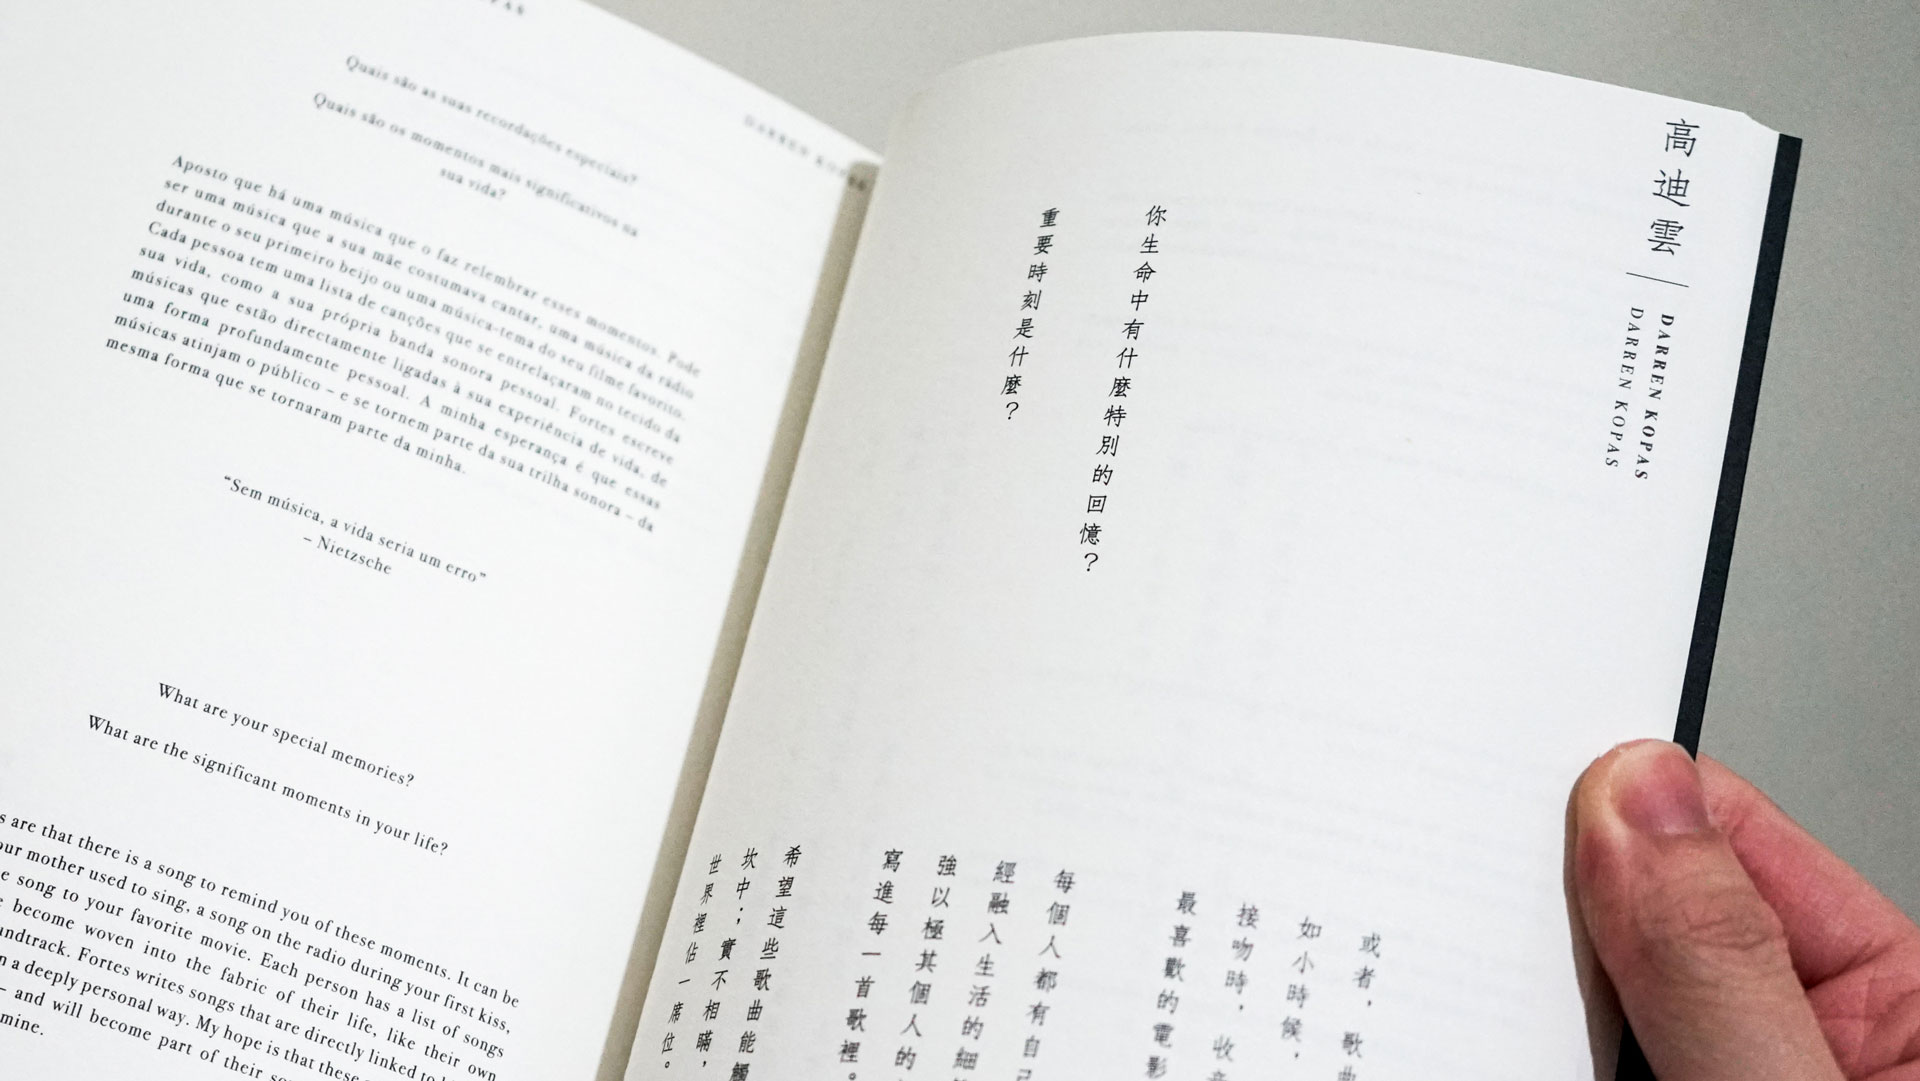 DARREN KOPAS
Quais são as suas recordações especiais?
Quais são os momentos mais significativos na
sua vida?
Aposto que há uma música que o faz relembrar esses momentos. Pode
ser uma música que a sua mãe costumava cantar, uma música da rádio
durante o seu primeiro beijo ou uma música-tema do seu filme favorito.
Cada pessoa tem uma lista de canções que se entrelaçaram no tecido da
sua vida, como a sua própria banda sonora pessoal. Fortes escreve
músicas que estão directamente ligadas à sua experiência de vida, de
uma forma profundamente pessoal. A minha esperança é que essas
músicas atinjam o público – e se tornem parte da sua trilha sonora – da
mesma forma que se tornaram parte da minha.
“Sem música, a vida seria um erro”
– Nietzsche
What are your special memories?
What are the significant moments in your life?
are that there is a song to remind you of these moments. It can be
your mother used to sing, a song on the radio during your first kiss,
song to your favorite movie. Each person has a list of songs
become woven into the fabric of their life, like their own
Fortes writes songs that are directly linked to
in a deeply personal way. My hope is that these
– and will become part of their
mine.
高迪雲
DARREN KOPAS
DARREN KOPAS
你生命中有什麼特別的回憶？
重要時刻是什麼？
或者，歌曲
如小時候，
接吻時，收音
最喜歡的電影
每個人都有自己
經融入生活的細
強以極其個人的
寫進每一首歌裡。
希望這些歌曲能觸
坎中；實不相瞞，
世界裡佔一席位。